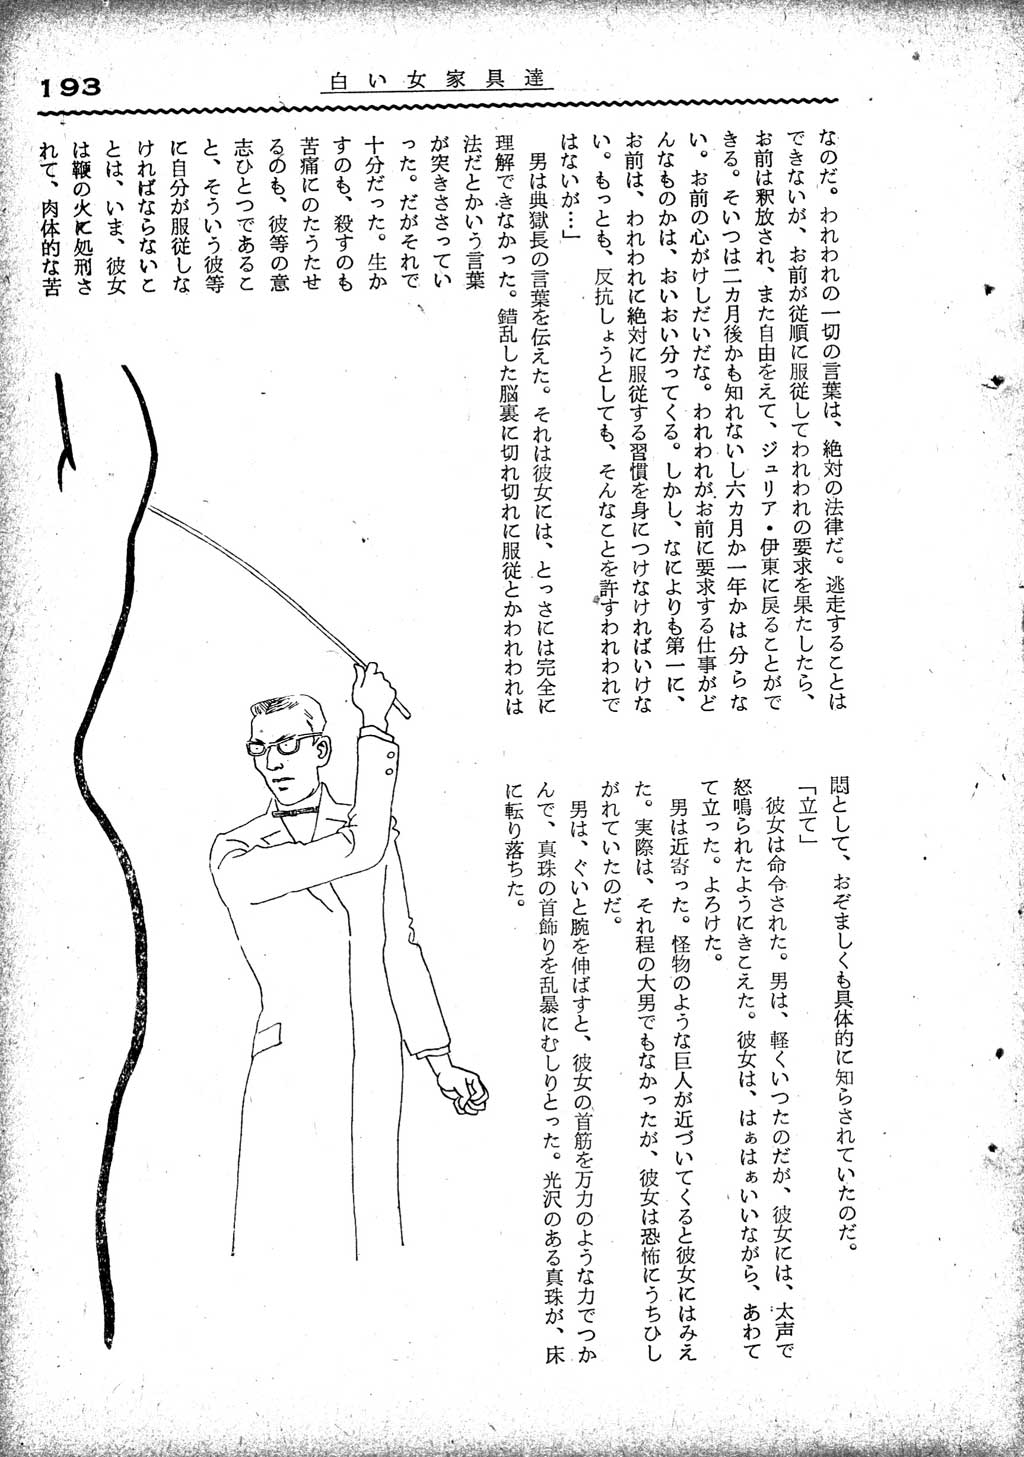 193
白い女家具達
なのだ。われわれの一切の言葉は、絶対の法律だ。逃走することは
できないが、お前が従順に服従してわれわれの要求を果たしたら、
お前は釈放され、また自由をえて、ジュリア・伊東に戻ることがで
きる。そいつは二カ月後かも知れないし六カ月か一年かは分らな
い。お前の心がけしだいだな。われわれがお前に要求する仕事がど
んなものかは、おいおい分ってくる。しかし、なによりも第一に、
お前は、われわれに絶対に服従する習慣を身につけなければいけな
い。もっとも、反抗しょうとしても、そんなことを許すわれわれで
はないが…」
男は典獄長の言葉を伝えた。それは彼女には、とっさには完全に
理解できなかった。錯乱した脳裏に切れ切れに服従とかわれわれは
法だとかいう言葉
が突きささってい
った。だがそれで
十分だった。生か
すのも、殺すのも
苦痛にのたうたせ
るのも、彼等の意
志ひとつであるこ
と、そういう彼等
に自分が服従しな
ければならないと
とは、いま、彼女
は鞭の火に処刑さ
れて、肉体的な苦
悶として、おぞましくも具体的に知らされていたのだ。
「立て」
彼女は命令された。男は、軽くいつたのだが、彼女には、太声で
怒鳴られたようにきこえた。彼女は、はぁはぁいいながら、あわて
て立った。よろけた。
男は近寄った。怪物のような巨人が近づいてくると彼女にはみえ
た。実際は、それ程の大男でもなかったが、彼女は恐怖にうちひし
がれていたのだ。
男は、ぐいと腕を伸ばすと、彼女の首筋を万力のような力でつか
んで、真珠の首飾りを乱暴にむしりとった。光沢のある真珠が、床
に転り落ちた。